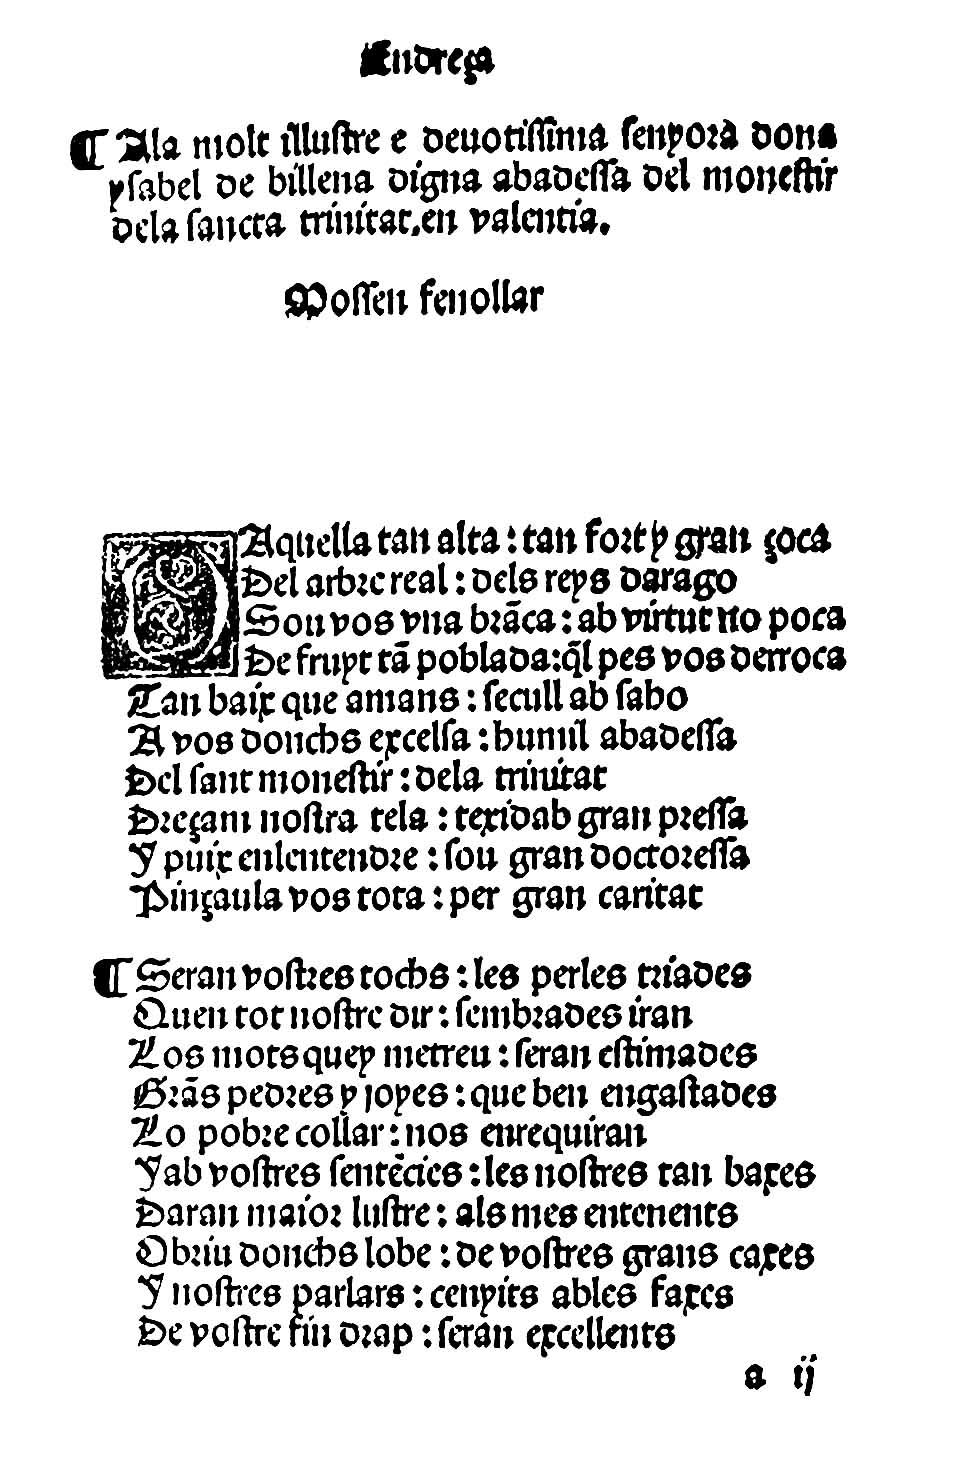 Endreça
¶ Ala molt illustre e deuotissima senyora dona
ysabel de billena digna abadessa del monestir
dela sancta trinitat.en valentia.
Mossen fenollar
D Aquella tan alta : tan fort y gran çoca
Del arbre real : dels reys darago
Sou vos vna brãca : ab virtut no poca
De fruyt tã poblada:q̃l pes vos derroca
Tan baix que amans : secull ab sabo
A vos donchs excelsa : humil abadessa
Del sant monestir : dela trinitat
Dreçam nostra tela : texidab gran pressa
Y puix enlentendre : sou gran doctoressa
Pinçaula vos tota : per gran caritat
¶ Seran vostres tochs : les perles triades
Quen tot nostre dir : sembrades iran
Los mots quey metreu : seran estimades
Grãs pedres y joyes : que ben engastades
Lo pobre collar : nos enrequiran
Yab vostres sentẽcies : les nostres tan baxes
Daran maior lustre : als mes entenents
Obriu donchs lobe : de vostres grans caxes
Y nostres parlars : cenyits ables faxes
De vostre fin drap : seran excellents
a ij